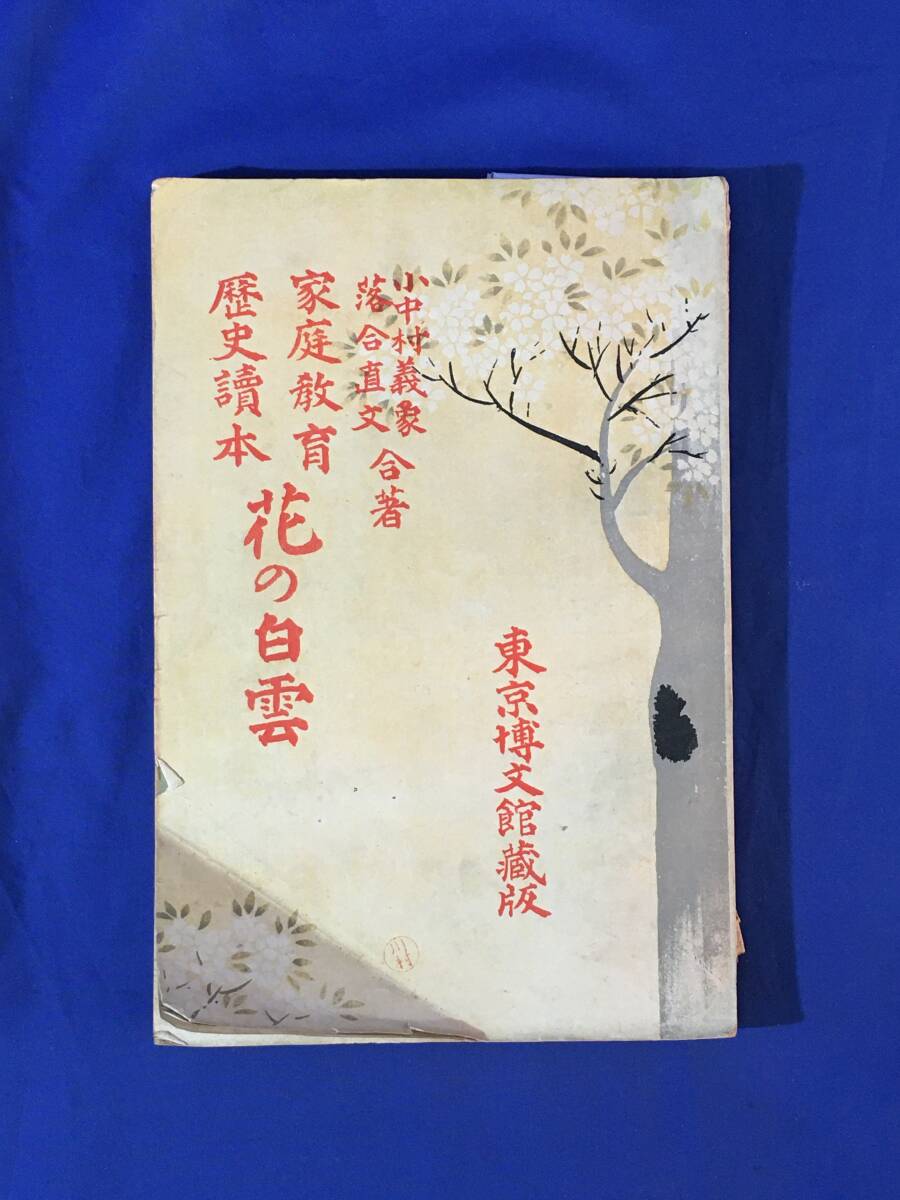 小中村義象
落合直文
合著
家庭教育
歷史讀本
花の白雲
東京博文館藏版
川村